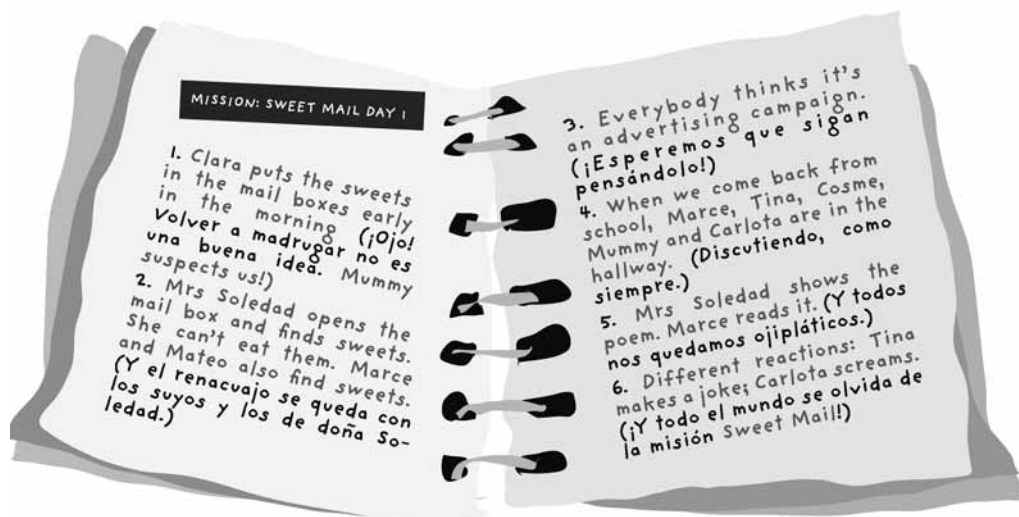 MISSION: SWEET MAIL DAY 1
1. Clara puts the sweets
in the mail boxes early
in the morning (¡Ojo!
Volver a madrugar no es
una buena idea. Mummy
suspects us!)
2. Mrs Soledad opens the
mail box and finds sweets.
She can't eat them. Marce
and Mateo also find sweets.
(Y el renacuajo se queda con
los suyos y los de doña So-
ledad.)
3. Everybody thinks it's
an advertising campaign.
(¡Esperemos que sigan
pensándolo!)
4. When we come back from
school, Marce, Tina, Cosme,
Mummy and Carlota are in the
hallway. (Discutiendo, como
siempre.)
5. Mrs Soledad shows the
poem. Marce reads it. (Y todos
nos quedamos ojipláticos.)
6. Different reactions: Tina
makes a joke; Carlota screams.
(¡Y todo el mundo se olvida de
la misión Sweet Mail!)